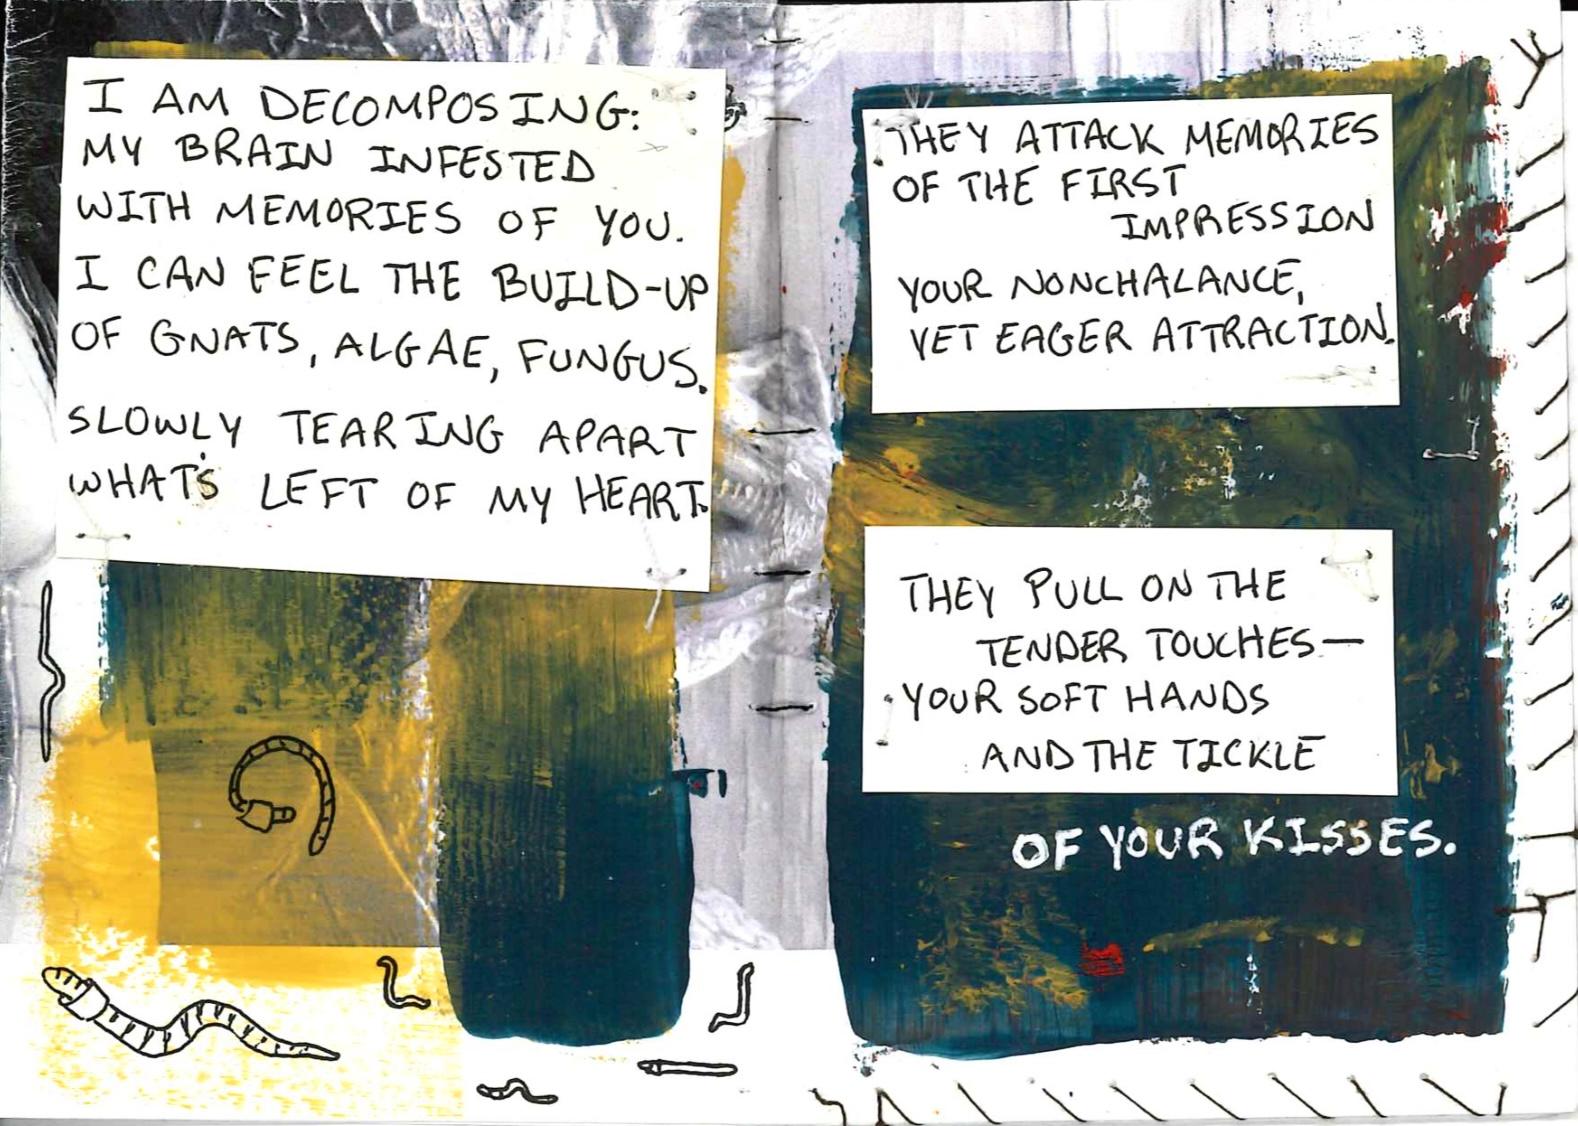 I AM DECOMPOSING:
MY BRAIN INFESTED
WITH MEMORIES OF YOU.
I CAN FEEL THE BUILD-UP
OF GNATS, ALGAE, FUNGUS.
SLOWLY TEARING APART
WHAT'S LEFT OF MY HEART.
THEY ATTACK MEMORIES
OF THE FIRST
IMPRESSION
YOUR NONCHALANCE,
YET EAGER ATTRACTION.
THEY PULL ON THE
TENDER TOUCHES—
YOUR SOFT HANDS
AND THE TICKLE
OF YOUR KISSES.